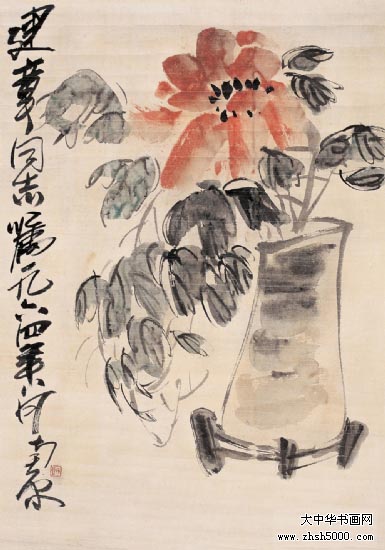 建章同志嘱一九六四年
大中华书画网
www.zhsh5000.com